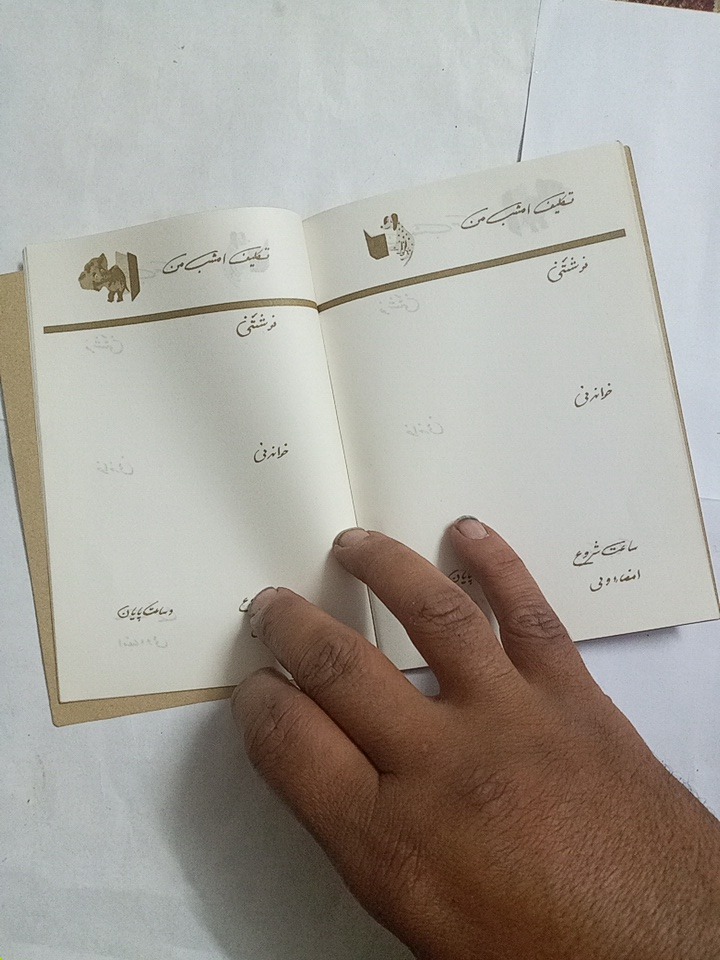 تکلیف امشب من
نوشتنی
خواندنی
ساعت شروع
پایان
امضاء ولی
تکلیف امشب من
نوشتنی
خواندنی
و ساعت پایان